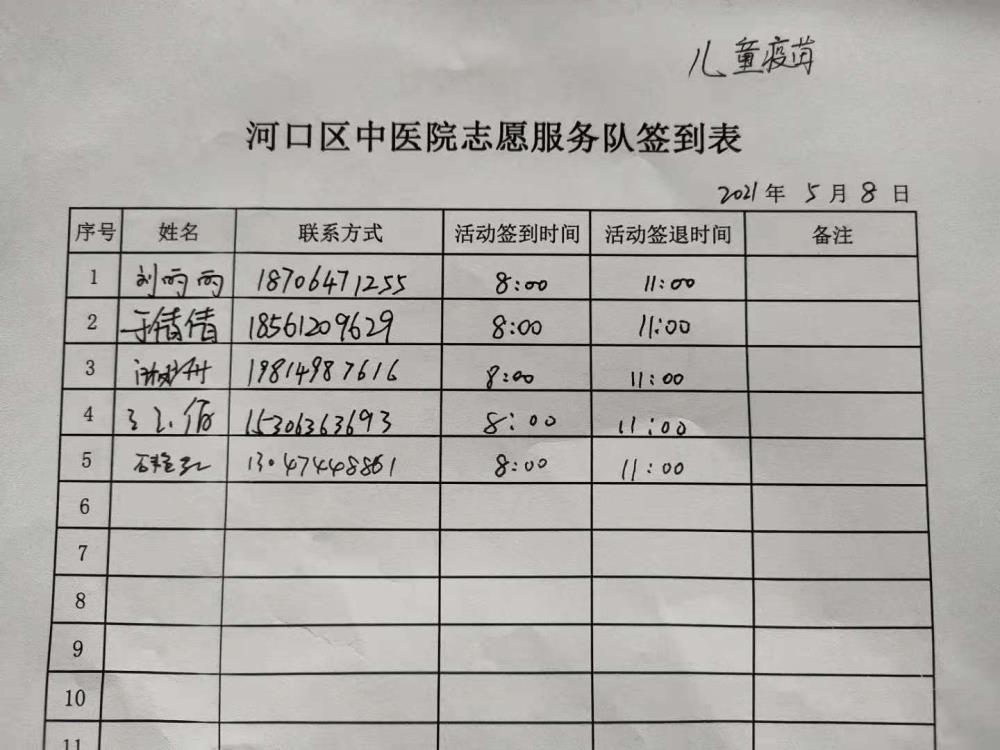 儿童疫苗
河口区中医院志愿服务队签到表
2021年 5月8日
序号 姓名 联系方式 活动签到时间 活动签退时间 备注
1 刘雨雨 18706471255 8:00 11:00
2 于倩倩 18561209629 8:00 11:00
3 19814987616 8:00 11:00
4 15306363693 8:00 11:00
5 13047448861 8:00 11:00
6
7
8
9
10
11